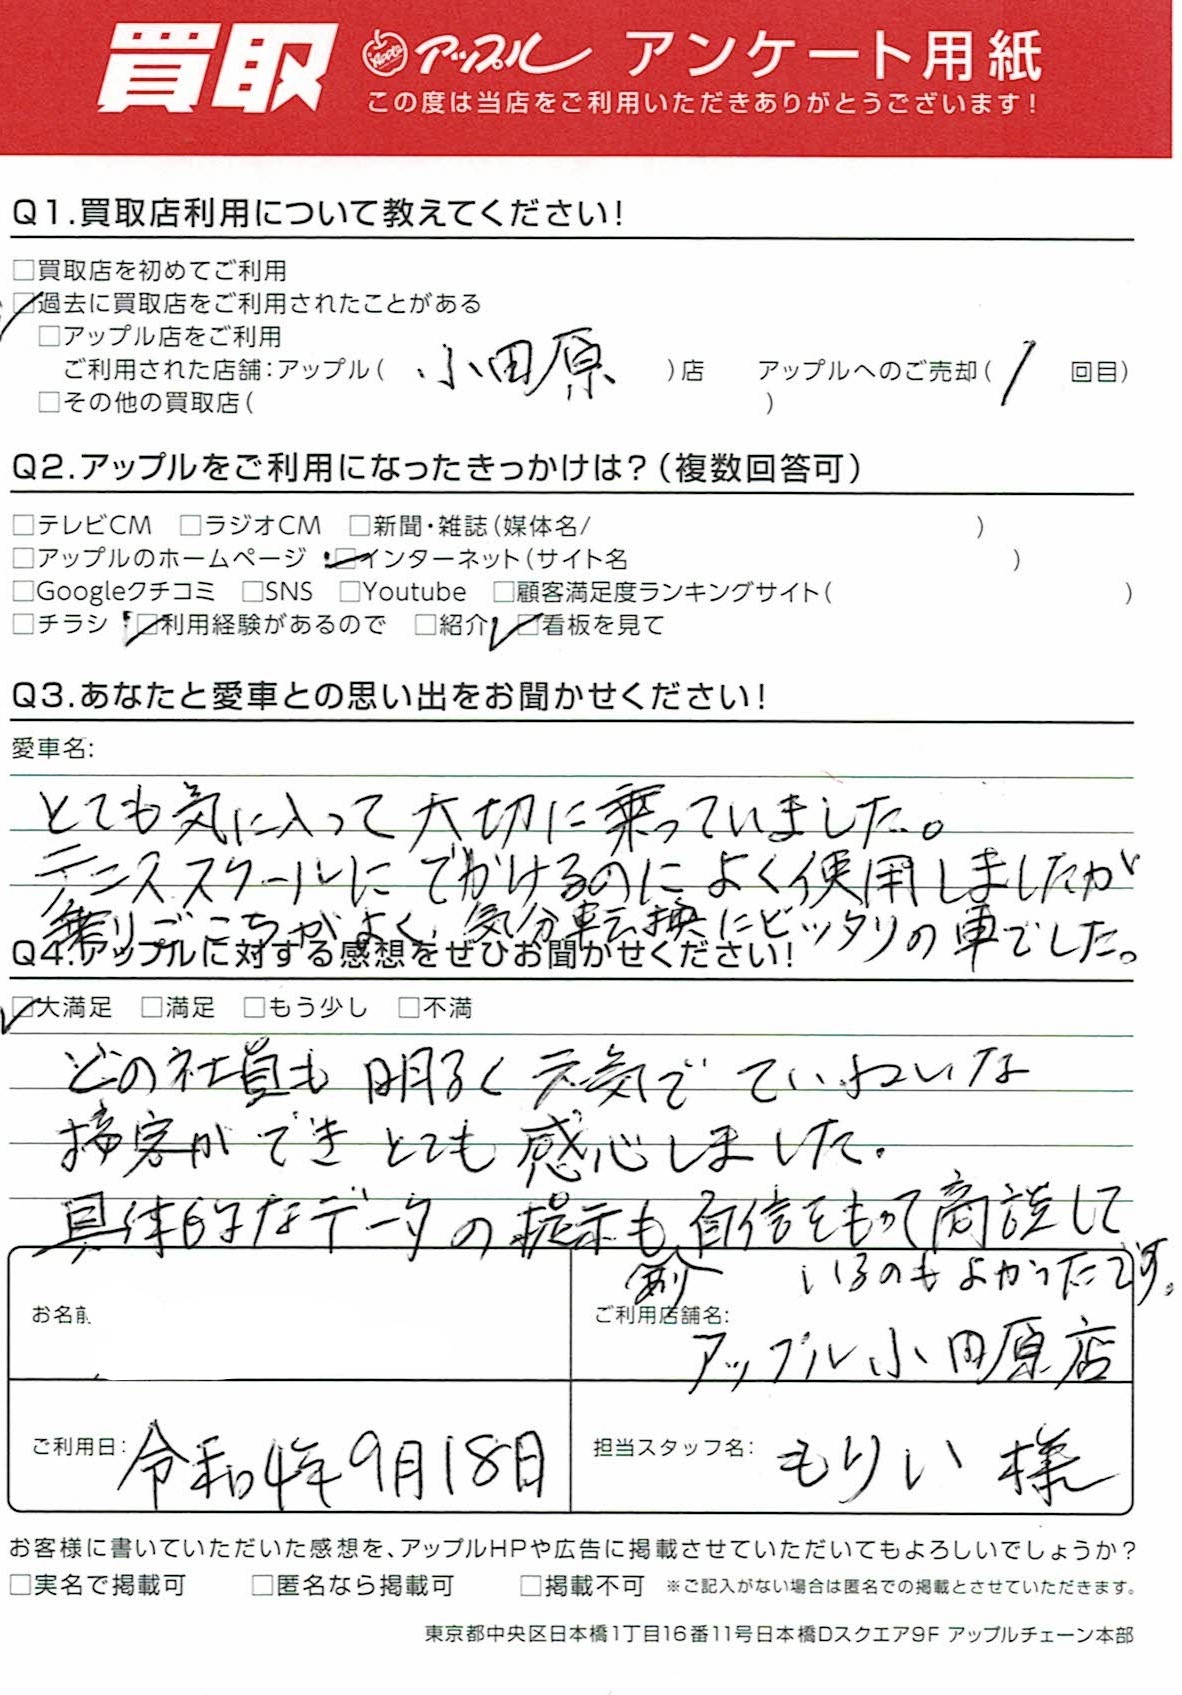 買取 Apple アップル アンケート用紙
この度は当店をご利用いただきありがとうございます!
Q1.買取店利用について教えてください!
□買取店を初めてご利用
☑過去に買取店をご利用されたことがある
□アップル店をご利用
ご利用された店舗:アップル( 小田原 )店 アップルへのご売却( 1 回目)
□その他の買取店( )
Q2.アップルをご利用になったきっかけは?(複数回答可)
□テレビCM □ラジオCM □新聞・雑誌(媒体名/ )
□アップルのホームページ ☑インターネット(サイト名 )
□Googleクチコミ □SNS □Youtube □顧客満足度ランキングサイト( )
□チラシ ☑利用経験があるので □紹介 ☑看板を見て
Q3.あなたと愛車との思い出をお聞かせください!
愛車名:
とても気に入って大切に乗っていました。
テニススクールにでかけるのによく使用しましたが
乗りごこちがよく、気分転換にピッタリの車でした。
Q4.アップルに対する感想をぜひお聞かせください!
☑大満足 □満足 □もう少し □不満
どの社員も明るく元気でていねいな
接客ができとても感心しました。
具体的なデータの提示もあり自信をもって商談して
いるのもよかったです。
お名前
ご利用店舗名:
アップル小田原店
ご利用日: 令和4年9月18日
担当スタッフ名: もりい様
お客様に書いていただいた感想を、アップルHPや広告に掲載させていただいてもよろしいでしょうか?
□実名で掲載可 □匿名なら掲載可 □掲載不可 ※ご記入がない場合は匿名での掲載とさせていただきます。
東京都中央区日本橋1丁目16番11号日本橋Dスクエア9F アップルチェーン本部